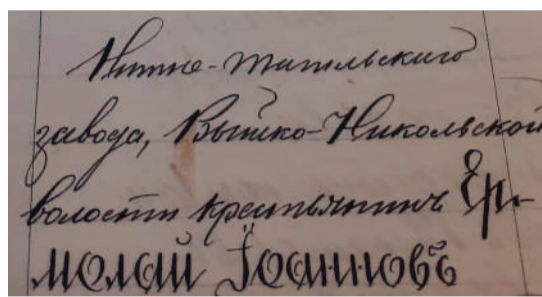 Нижне-тагильскаго
завода, Выйско-Никольской
волости крестьянинъ Ер-
молай Iоанновъ